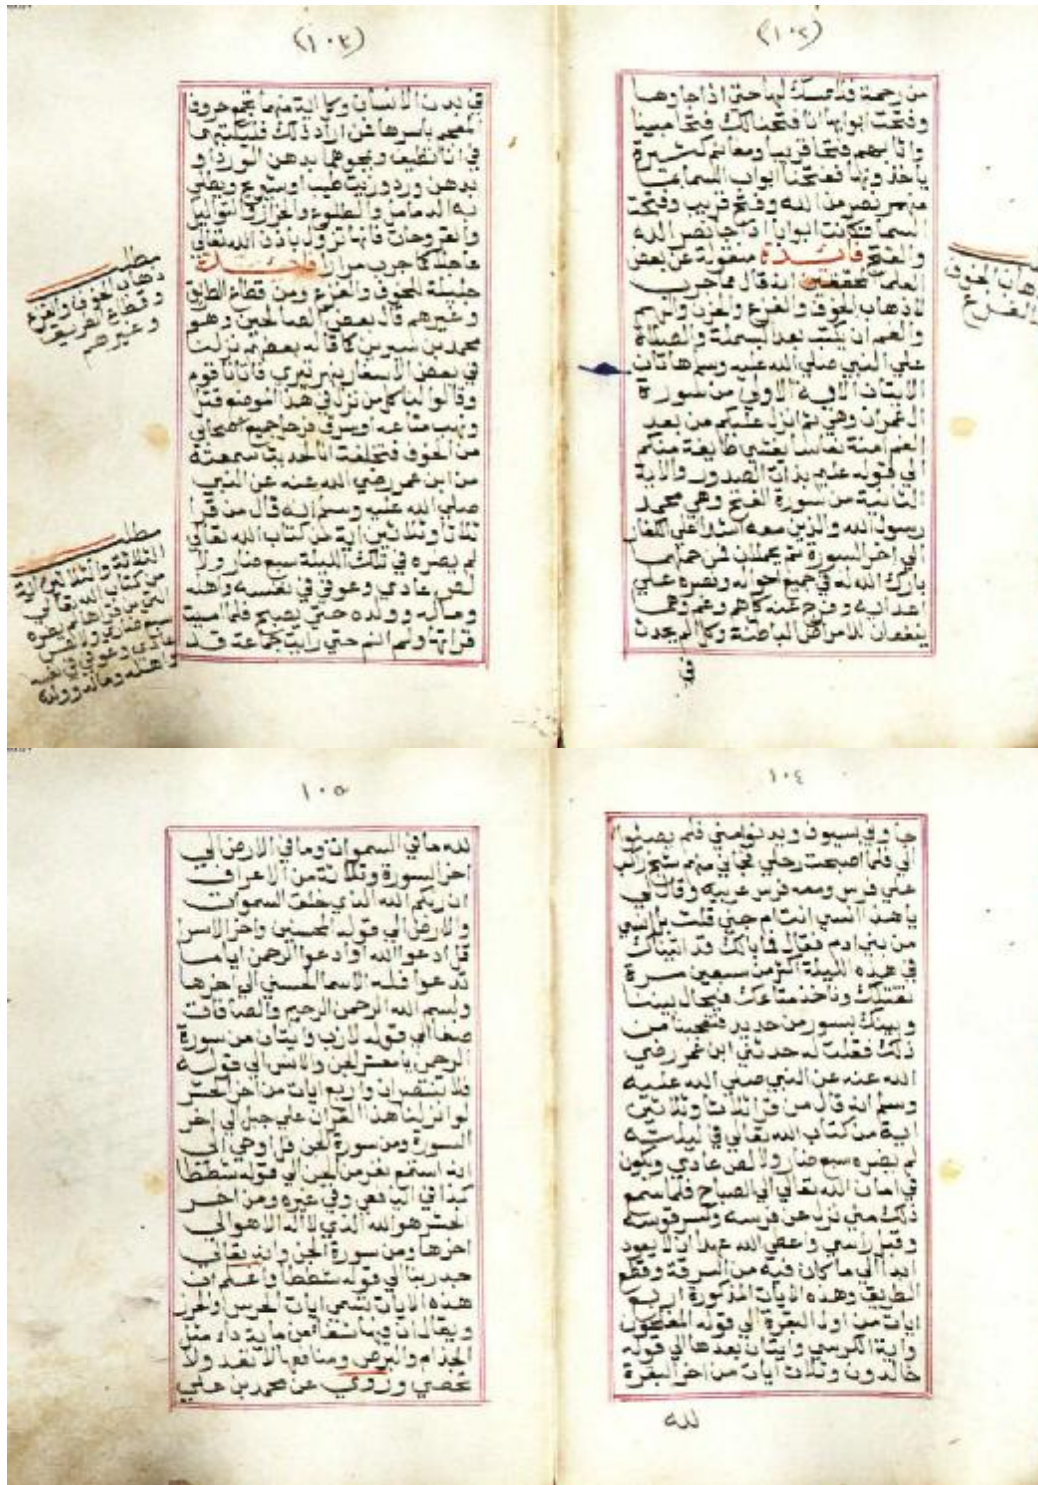 (١٠٢)
من رحمة فلا ممسك لها حتى اذا جاوها
وفتحت ابوابها انا فتحنا لك فتحا مبينا
واثابهم فتحا قريبا ومغانم كثيرة
ياخذونها ففتحنا ابواب السما بما
منهمر نصر من الله وفتح قريب وفتحت
السما فكانت ابوابا اذا جا نصر الله
والفتح فائدة منقولة عن بعض
العلما المحققين انه قال مما جرب
لاذهاب الخوف والفزع والحزن والهم
والغم ان يكتب بعد البسملة والصلاة
على النبي صلي الله عليه وسلم هاتان
الايتان الاية الاولي من سورة
ال عمران وهي ثم انزل عليكم من بعد
الغم امنة نعاسا يغشي طايفة منكم
الي قوله عليم بذات الصدور والاية
الثانية من سورة الفتح وهي محمد
رسول الله والذين معه اشدا علي الكفار
الي اخر السورة ثم يحملان فمن حملهما
بارك الله له في جميع احواله ونصره علي
اعدايه وفرج عنه كل هم وغم وهما
ينفعان للامراض الباطنة وكل الم يحدث
ذهاب الخوف
والفزع
(١٠٣)
في بدن الانسان وكل اية منهما تجمع حروف
المعجم باسرها فمن اراد ذلك فليكتبهما
في انا نظيف ويمحوهما بدهن الورد او
بدهن ورد وزيت طيب او شيرج ويطلي
به الدمامل والطلوع والحزاز والثواليل
والقروحات فانها تزول باذن الله تعالي
عاجلا كما جرب مرارا فائدة
جليلة للخوف والفزع ومن قطاع الطريق
وغيرهم قال بعض الصالحين وهو
محمد بن سيرين كما قاله بعضهم نزلت
في بعض الاسفار بنهر تيري فاتانا قوم
وقالوا لنا كل من نزل في هذا الموضع قتل
ونهب متاعه وسرق فرحل جميع اصحابي
من الخوف فتخلفت انا لحديث سمعته
من ابن عمر رضي الله عنه عن النبي
صلي الله عليه وسلم انه قال من قرا
ثلاثا وثلاثين اية من كتاب الله تعالي
لم يضره في تلك الليلة سبع ضار ولا
لص عادي وعوفي في نفسه واهله
وماله وولده حتي يصبح فلما امسيت
قراتها ولم انم حتي رايت جماعة قد
مطلب
ذهاب الخوف والفزع
وقطاع الطريق
وغيرهم
مطلب
الثلاثة والثلاثين اية
من كتاب الله تعالي
التي من قراها لم يضره
سبع ضاري ولا لص
عادي وعوفي في نفسه
واهله وماله وولده
١٠٤
جاوني بسيوف ويدنوا مني فلم يصلوا
الي فلما اصبحت رحلت فجاني منهم شيخ راكب
علي فرس ومعه قوس عربيه وقال لي
يا هذا انسي انت ام جني قلت بل انسي
من بني ادم فقال فما بالك قد اتيناك
في هذه الليلة اكثر من سبعين مرة
نقتلك وناخذ متاعك فيحال بيننا
وبينك بسور من حديد فتعجبنا من
ذلك فقلت له حدثني ابن عمر رضي
الله عنه عن النبي صلي الله عليه
وسلم انه قال من قرا ثلاثا وثلاثين
اية من كتاب الله تعالي في ليلته
لم يضره سبع ضار ولا لص عادي ويكون
في امان الله تعالي الي الصباح فلما سمع
ذلك مني نزل عن فرسه وكسر قوسه
وقبل راسي واعطي الله عهدا ان لا يعود
ابدا الي ما كان فيه من السرقة وقطع
الطريق وهذه الايات المذكورة اربع
ايات من اول البقرة الي قوله المفلحون
واية الكرسي وايتان بعدها الي قوله
خالدون وثلاث ايات من اخر البقرة
لله
١٠٥
لله ما في السموات وما في الارض الي
اخر السورة وثلاثة من الاعراف
ان ربكم الله الذي خلق السموات
والارض الي قوله المحسنين واخر الاسرا
قل ادعوا الله او ادعوا الرحمن اياما
تدعوا فله الاسما الحسني الي اخرها
وبسم الله الرحمن الرحيم والصافات
صفا الي قوله لازب وايتان من سورة
الرحمن يا معشر الجن والانس الي قوله
فلا تنتصران واربع ايات من اخر الحشر
لو انزلنا هذا القران علي جبل الي اخر
السورة ومن سورة الجن قل اوحي الي
انه استمع نفر من الجن الي قوله شططا
كذا في اليافعي وفي غيره ومن اخر
الحشر هو الله الذي لا اله الا هو الي
اخرها ومن سورة الجن وانه تعالي
جد ربنا الي قوله شططا واعلم ان
هذه الايات تسمي ايات الحرس والحرز
ويقال ان فيها شفا من ماية داء مثل
الجذام والبرص ومنافعها لا تنفد ولا
تحصي وروي عن محمد بن علي